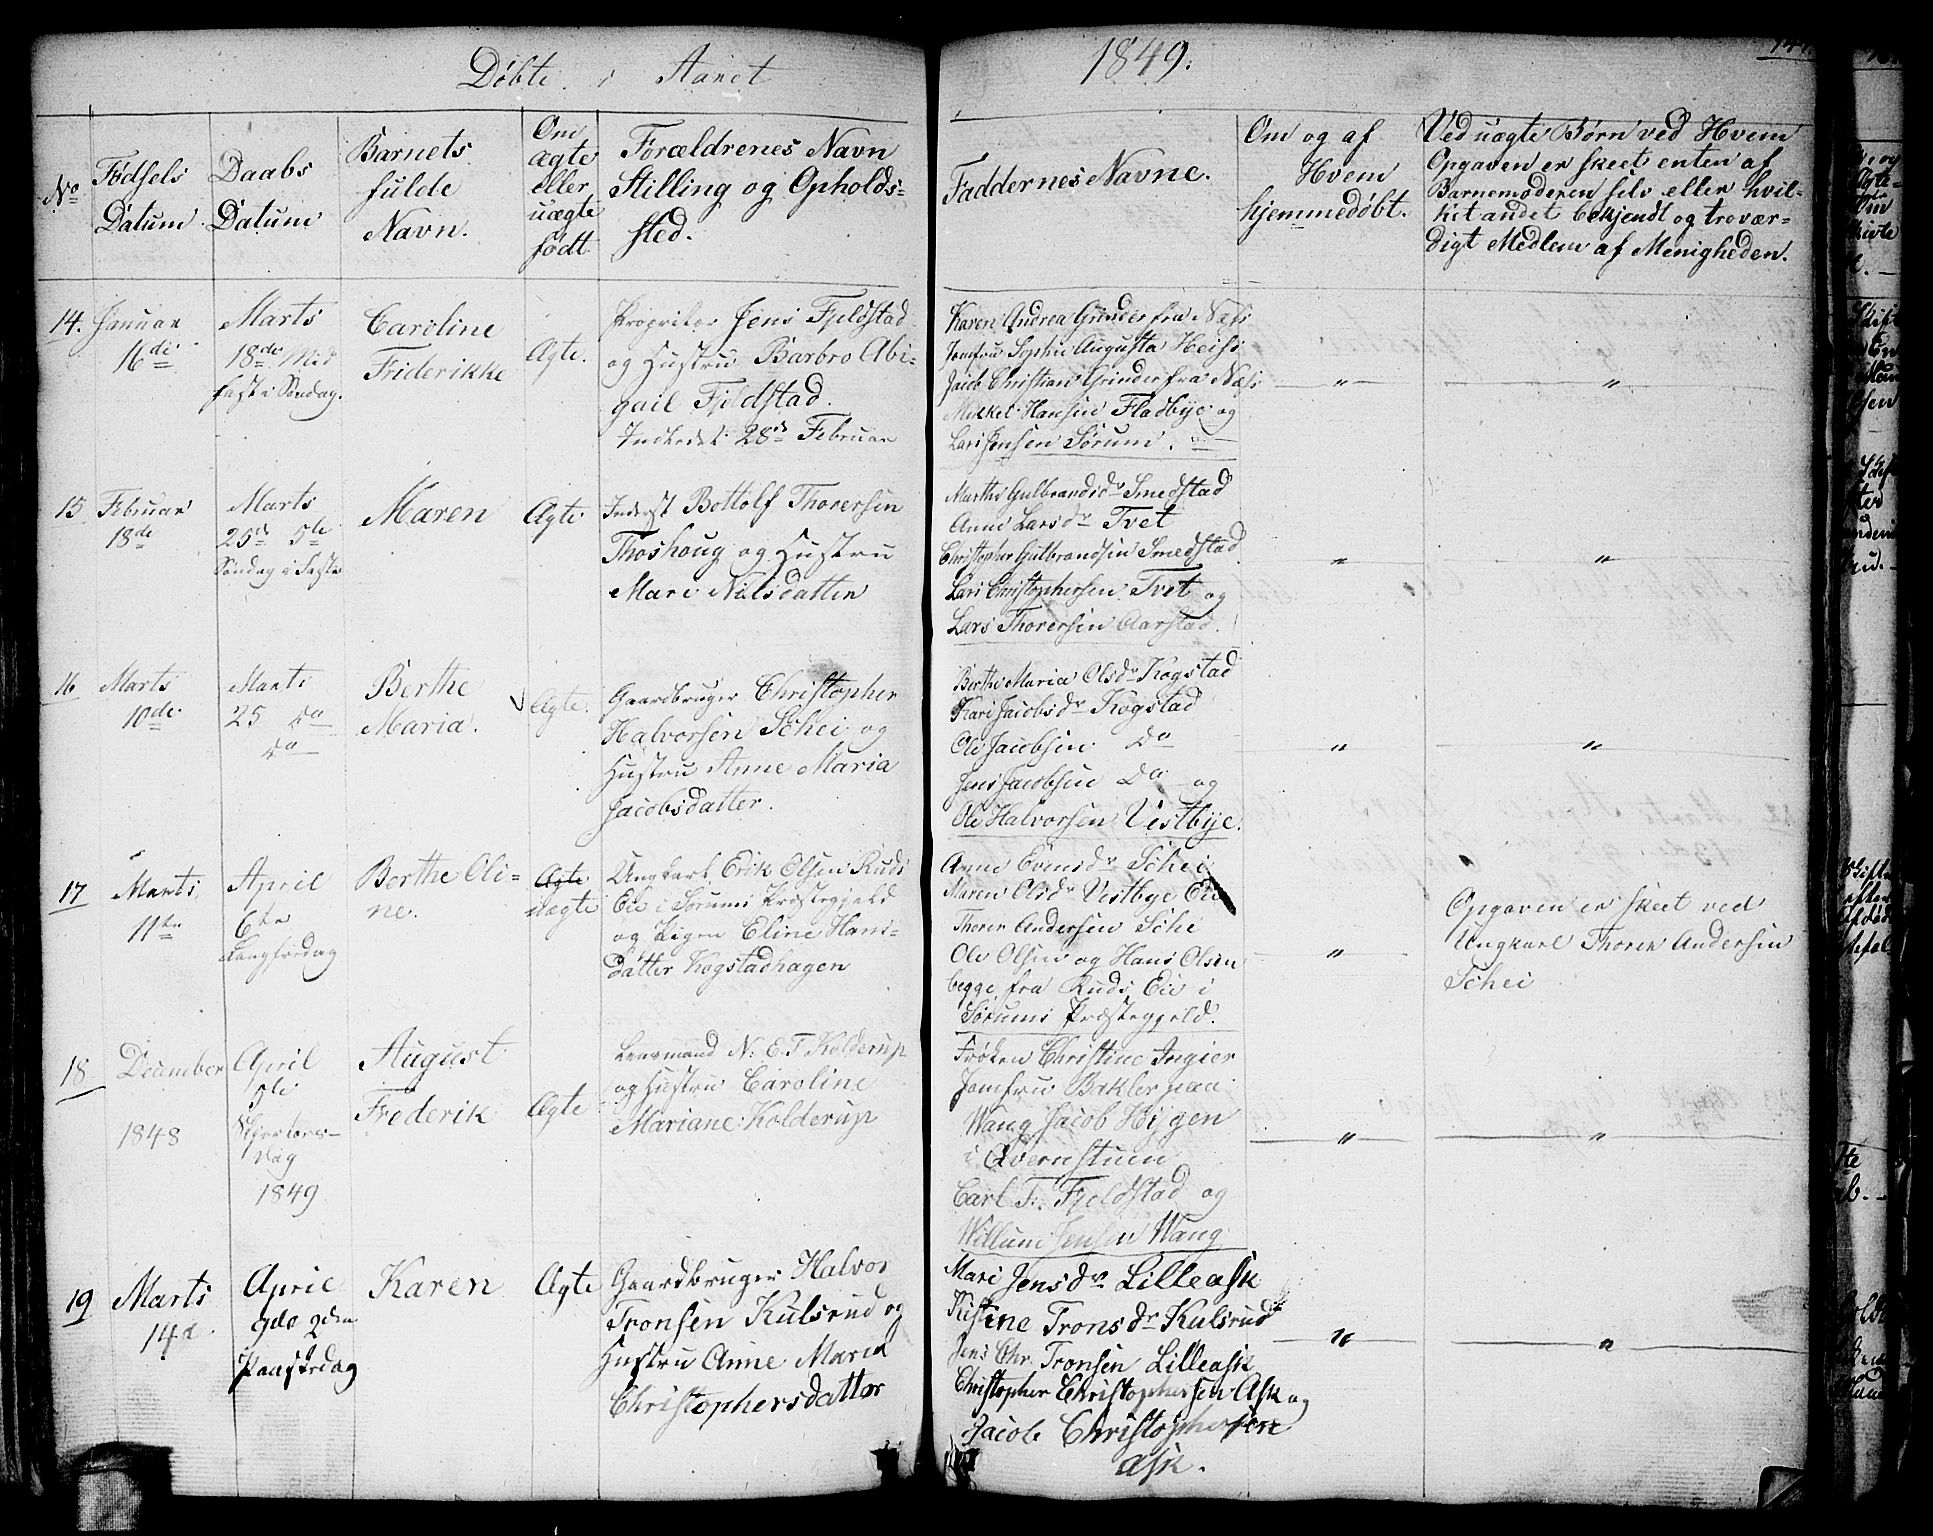 Døbte i Aaret 1849.
No
Fødsels
Datum
Daabs
Datum
Barnets
fulde
Navn.
Om
ægte
eller
uægte
født
Forældrenes Navn
Stilling og Opholds-
sted.
Faddernes Navne.
Om og af
Hvem
hjemmedøbt.
Ved uægte Børn ved Hvem
Opgaven er skeet enten af
Barnemoderen selv eller hvil-
ket andet bekjendt og trovær-
digt Medlem af Menigheden.
14. Januar
16de
Marts
18de Mid
faste Søndag.
Caroline
Friderikke
Ægte.
Propritær Jens Fjeldstad
og Hustru Barbro Abi-
gail Fjeldstad.
28de Februar
Karen Andrea Grinder fra Næs
Jomfru Sophie Augusta Heiss
Jacob Christian Grinder fra Næs
Mikkel Hansen Fladbye og
Lars Jensen Sørum.
" "
15 Februar
18de
Marts
25de 5te
Søndag i Faste
Maren
Ægte
Inderst Bottolf Thorersen
Thoshoug og Hustru
Mari Nilsdatter
Marthe Gulbrandsdr Smedstad
Anne Larsdr Tvet
Christopher Gulbrandsen Smedstad.
Lars Christophersen Tvet og
Lars Thorersen Aarstad.
" "
16 Marts
10de
Marts
25 Do
Do
Berthe
Maria.
Ægte.
Gaardbruger Christopher
Halvorsen Schei og
Hustru Anne Maria
Jacobsdatter.
Berthe Maria Olsdr Kogstad
Kari Jacobsdr Kogstad
Ole Jacobsen Do
Jens Jacobsen Do og
Ole Halvorsen Vestbye.
" "
17 Marts
11te
April
6te
Langfredag
Berthe Oli-
ne.
Ægte
Uægte
Ungkarl Erik Olsen Ruds
Eie i Sørums Præstegjeld
og Pigen Eline Hans-
datter Kogstadhagen
Anne Evensdr Schei
Maren Olsdr Vestbye Eie
Thorer Andersen Schei
Ole Olsen og Hans Olsen
begge fra Ruds Eie i
Sørums Præstegjeld.
"
Opgaven er skeet ved
Ungkarl Thorer Andersen
Schei
18 December
1848
April
5te
Skjertors-
dag
1849
August
Frederik
Ægte
Lensmand N: E. T Kolderup
og Hustru Caroline
Mariane Kolderup
Frøken Christine Ingier
Jomfru Bekler paa
Wang Jacob Hygen
i Qvernstuen
Carl T: Fjeldstad og
Willum Jensen Wang
" "
19 Marts
14d
April
9de 2den
Paaskedag
Karen
Ægte
Gaardbruger Halvor
Tronsen Kulsrud og
Hustru Anne Maria
Christophersdatter
Mari Jensdr Lilleask
Kistine Tronsdr Kulsrud
Jens Chr. Tronsen Lilleask
Christopher Christophersen Ask og
Jacob Christophersen
Ask.
" "